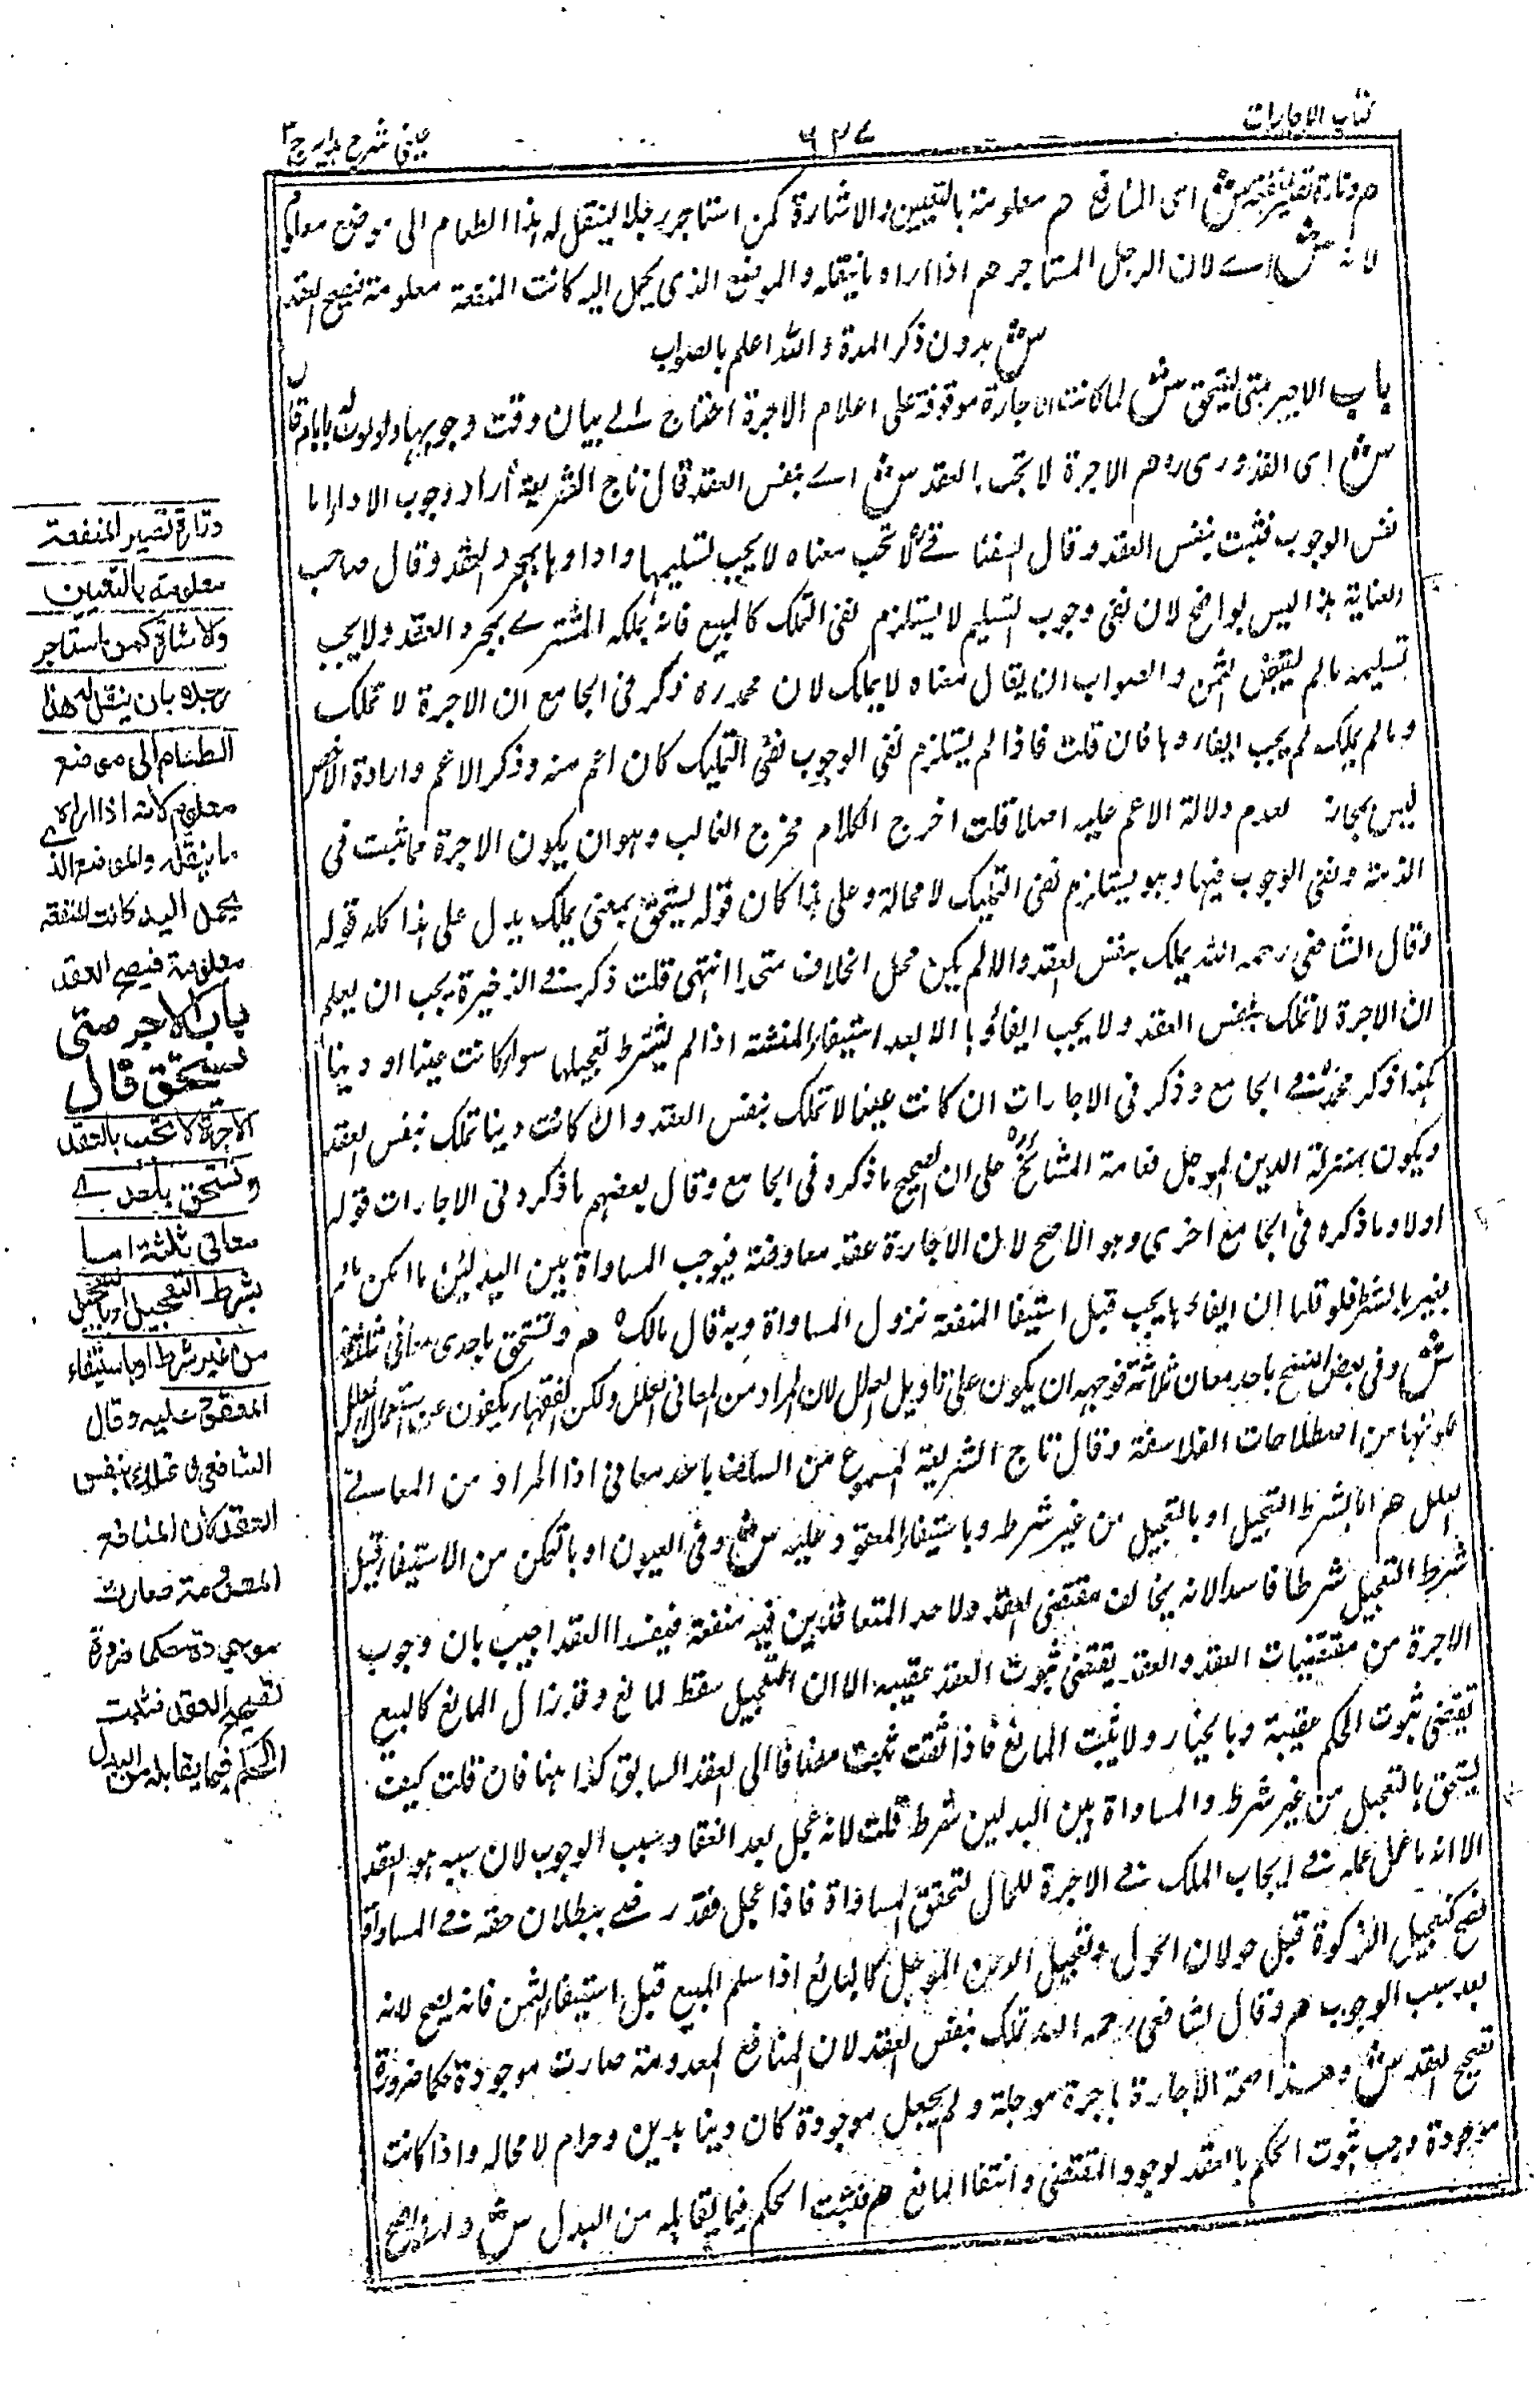 كتاب الاجارات
٦٢٧
عينى شرح هدايه ج ٣
م وتارة تصير المنفعة ش اى المنافع م معلومة بالتعيين والاشارة كمن استاجر رجلا لينقل له هذا الطعام الى موضع معلوم
لانه ش اے لان الرجل المستاجر م اذا اراه ما ينقله والموضع الذى يحمل اليه كانت المنفعة معلومة فيصح العقد
ش بدون ذكر المدة والله اعلم بالصواب
باب الاجر متى يستحق ش لما كانت الاجارة موقوفة على اعلام الاجرة احتاج الے بيان وقت وجوبها
ش اى القدورى ره م الاجرة لا تجب بالعقد ش اے بنفس العقد قال تاج الشريعة اراد وجوب الادا اما
نفس الوجوب فثبت بنفس العقد وقال السغناقے لا تجب معناه لا يجب تسليمها واداوها بمجرد العقد وقال صاحب
العناية هذا ليس بواضح لان نفى وجوب التسليم لا يستلزم نفى التملك كالمبيع فانه يملكه المشترے بمجرد العقد ولا يجب
تسليمه مالم يقبض الثمن والصواب ان يقال معناه لا يملك لان محمد ره ذكر فى الجامع ان الاجرة لا تملك
ومالم يملك لم يجب ايفاءوها فان قلت فاذا لم يستلزم نفى الوجوب نفى التمليك كان اعم منه وذكر الاعم وارادة الاخص
ليس بمجاز لعدم دلالة الاعم عليه اصلا قلت اخرج الكلام مخرج الغالب وهو ان يكون الاجرة مما تثبت فى
الذمة ونفى الوجوب فيها وهو يستلزم نفى التمليك لا محالة وعلى هذا كان قوله يستحق بمعنى يملك يدل على هذا كله قوله
وقال الشافعى رحمه الله يملك بنفس العقد والا لم يكن محل الخلاف متحدا انتهى قلت ذكر فے الذخيرة يجب ان يعلم
ان الاجرة لا تملك بنفس العقد ولا يجب ايفاؤها الا بعد استيفاء المنفعة اذا لم يشترط تعجيلها سواء كانت عينا او دينا
هكذا ذكر محمد فے الجامع وذكر فى الاجارات ان كانت عينا لا تملك بنفس العقد وان كانت دينا تملك بنفس العقد
ويكون بمنزلة الدين الموجل فعامة المشائخ على ان الصحيح ما ذكره فى الجامع وقال بعضهم ما ذكره فى الاجارات قوله
اولا وما ذكره فى الجامع اخرى وهو الاصح لان الاجارة عقد معاوضة فيوجب المساواة بين البدلين ما امكن مالم
يغيرها بالشرط فلو قلنا ان ايفاءها يجب قبل استيفا المنفعة تزول المساواة وبه قال مالك م وتستحق باحدى معانى ثلثة
ش وفى بعض النسخ باحد معان ثلاثة فوجهه ان يكون على تاويل العلل لان المراد من المعانى العلل ولكن الفقهاء يكفون عن استعمال العلل
لكونها من اصطلاحات الفلاسفة وقال تاج الشريعة المسموع من السلف باحد معانى اذا المراد من المعانے
العلل م اما بشرط التعجيل او بالتعجيل من غير شرط وباستيفاء المعقود عليه ش وفى العيون او بالتمكن من الاستيفاء قيل
شرط التعجيل شرطا فاسدا لانه يخالف مقتضى العقد ولاحد المتعاقدين فيه منفعة فيفسد العقد اجيب بان وجوب
الاجرة من مقتضيات العقد والعقد يقتضى ثبوت العقد عقيبه الا ان التعجيل سقط لمانع وقد زال المانع كالبيع
يقتضى ثبوت الحكم عقيبة وبالخيار ولا يثبت المانع فاذا ثبت مضافا الى العقد السابق كذا هنا فان قلت كيف
يستحق بالتعجيل من غير شرط والمساواة بين البدلين شرط قلت لانه عجل بعد انعقاد سبب الوجوب لان سببه هو العقد
الا انه ما عمل عمله فے ايجاب الملك فے الاجرة للحال لتحقق المساواة فاذا عجل فقد رضے ببطلان حقه فے المساواة
فصح كتعجيل الزكوة قبل حولان الحول وتعجيل الدين الموجل كالبائع اذا سلم المبيع قبل استيفاء الثمن فانه يصح لانه
بعد سبب الوجوب م وقال الشافعى رحمه الله تملك بنفس العقد لان المنافع المعدومة صارت موجودة حكما ضرورة
تصحيح العقد ش وهذا صحة الاجارة باجرة موجلة ولم يجعل موجودة كان دينا بدين وحرام لا محاله واذا كانت
موجودة وجب ثبوت الحكم بالعقد لوجود المقتضى وانتفا المانع م فثبت الحكم فيما يقابله من البدل ش
وتارة تصير المنفعة
معلومة بالتعيين
والاشارة كمن استاجر
رجلا بان ينقل له هذا
الطعام الى موضع
معلوم لانه اذا اراه
ما ينقله والموضع الذے
يحمل اليه كانت المنفعة
معلومة فيصح العقد
باب الاجر متى
يستحق قال
الاجرة لا تجب بالعقد
وتستحق باحدے
معانى ثلثة اما
بشرط التعجيل او بالتعجيل
من غير شرط او باستيفاء
المعقود عليه وقال
الشافعى تملك بنفس
العقد لان المنافع
المعدومة صارت
موجودة حكما ضرورة
تصحيح العقد فثبت
الحكم فيما يقابله من البدل